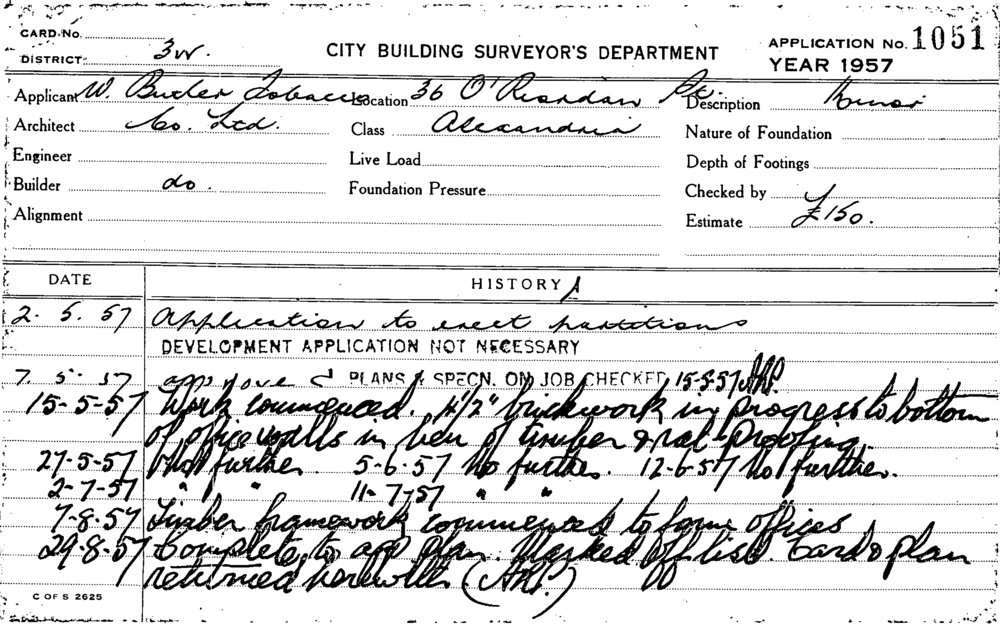 CARD No.
DISTRICT 3W.
CITY BUILDING SURVEYOR'S DEPARTMENT
APPLICATION No. 1051
YEAR 1957
Applicant W. Butler Tobacco Location 36 O'Riordan St. Description Minor
Architect Co. Ltd. Class Alexandria Nature of Foundation
Engineer Live Load Depth of Footings
Builder do. Foundation Pressure Checked by
Alignment Estimate £150.
DATE HISTORY
2. 5. 57 Application to erect partitions
DEVELOPMENT APPLICATION NOT NECESSARY
7. 5. 57 approved PLANS & SPECN. ON JOB CHECKED 15-5-57
15-5-57 Work commenced. 4½" brickwork in progress to bottom
of office walls in lieu of timber & rat-proofing.
27-5-57 No further. 5-6-57 No further. 12-6-57 No further.
2-7-57 " " 11-7-57 " "
7-8-57 Timber framework commenced to form offices
29-8-57 Complete to app plan. Marked off list. Card & plan
returned herewith.
C OF S 2625